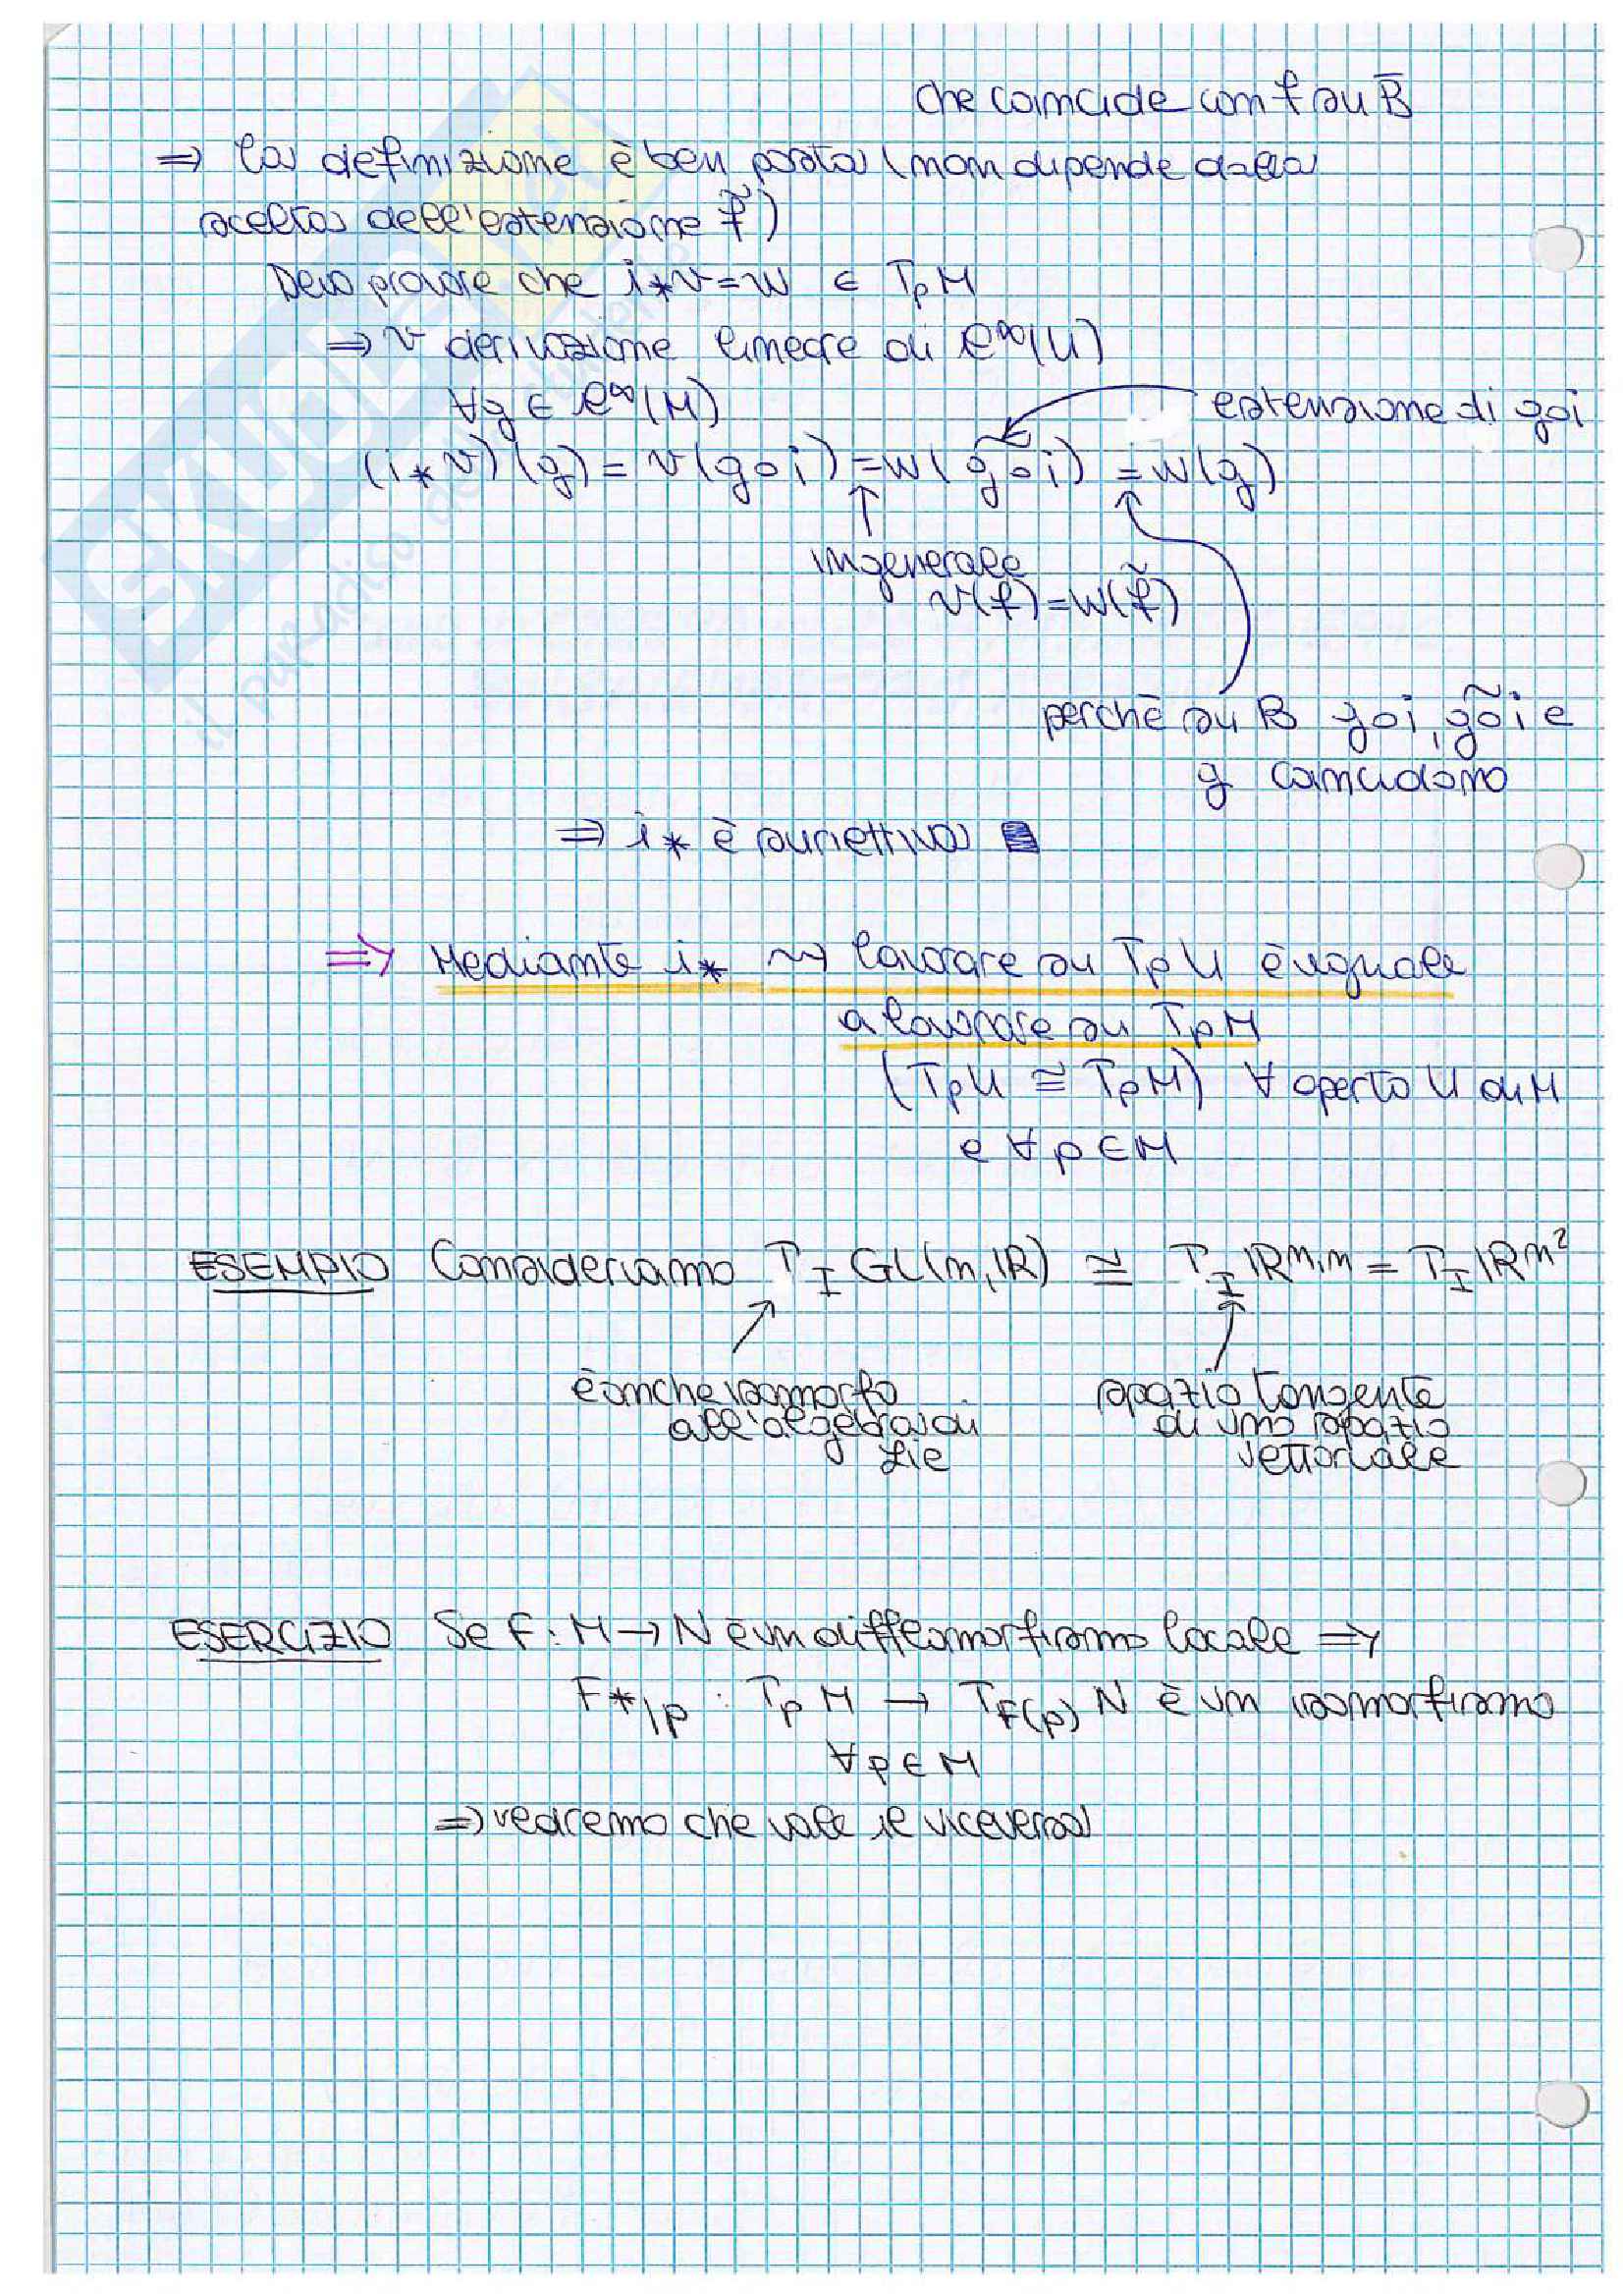 che coincide con f su B̄
⇒ la definizione è ben posta (non dipende dalla
scelta dell'estensione f̃)
Devo provare che i*v=w ∈ TpM
⇒ v derivazione lineare di C∞(U)
∀g ∈ C∞(M)
estensione di g∘i
(i*v)(g) = v(g∘i) = w(g̃∘i) = w(g)
in generale
v(f)=w(f̃)
perchè su B g∘i, g̃∘i e
g coincidono
⇒ i* è suriettiva
⇒ Mediante i* ⇝ lavorare su TpU è uguale
a lavorare su TpM
(TpU ≅ TpM) ∀ aperto U di M
e ∀p∈M
ESEMPIO Consideriamo T_I GL(n,ℝ) ≅ T_I ℝ^{n,n} = T_I ℝ^{n²}
è anche isomorfo
all'algebra di
Lie
spazio tangente
di uno spazio
vettoriale
ESERCIZIO Se F: M→N è un diffeomorfismo locale ⇒
F*|p : TpM → T_{F(p)}N è un isomorfismo
∀p∈M
⇒ vedremo che vale il viceversa
SKUOLA
il paradiso dello studente